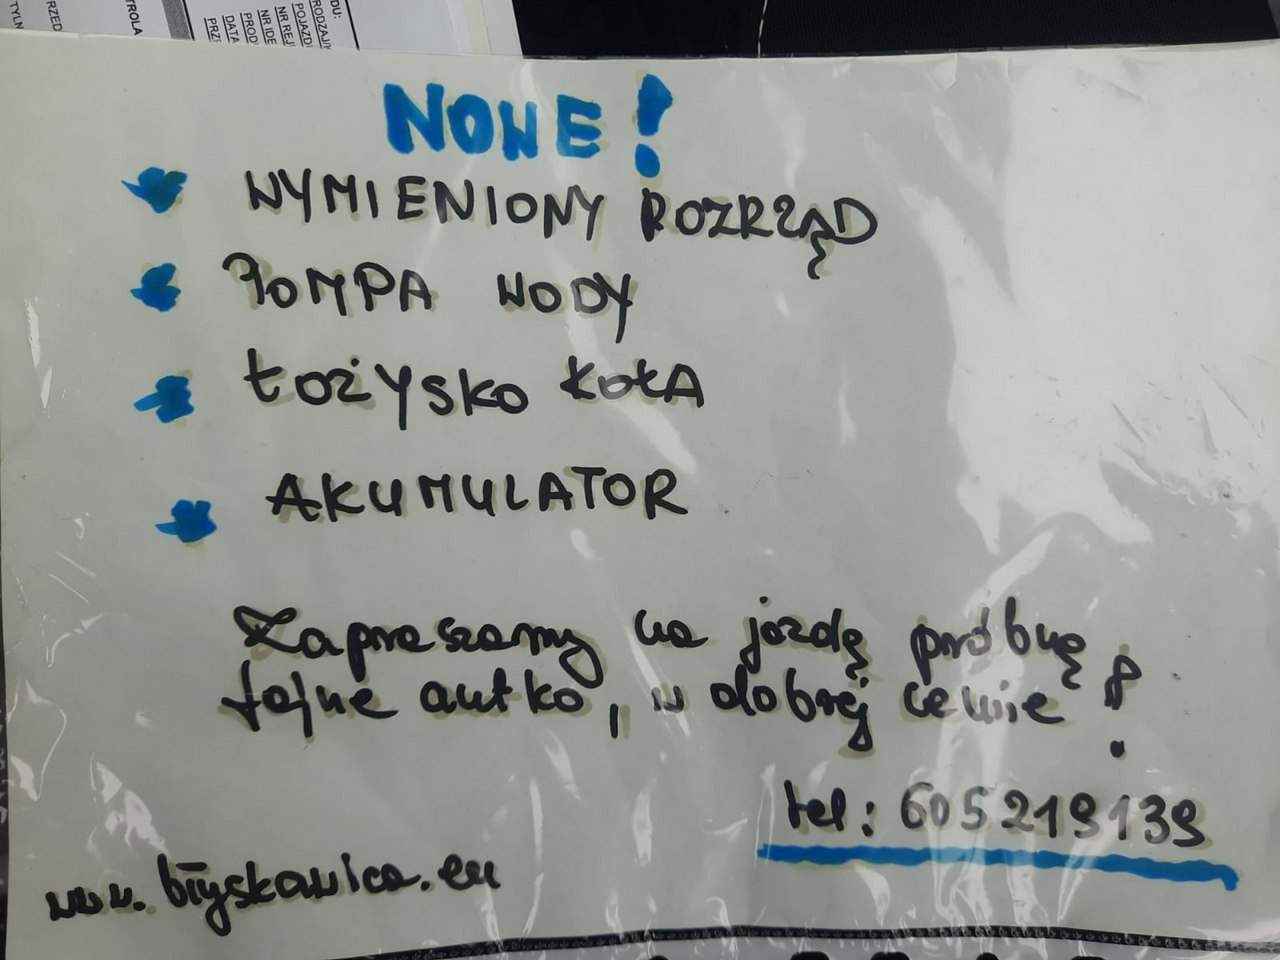 TYLN
RZĘD
TROLA
PRZE
DATA
PROD
NR IDE
NR REJ
POJAZD
RODZAJ
DU:
NOWE!
WYMIENIONY ROZRZĄD
POMPA WODY
ŁOŻYSKO KOŁA
AKUMULATOR
Zapraszamy na jazdę próbną
fajne autko, w dobrej cenie!
tel: 605219139
www.błyskawica.eu